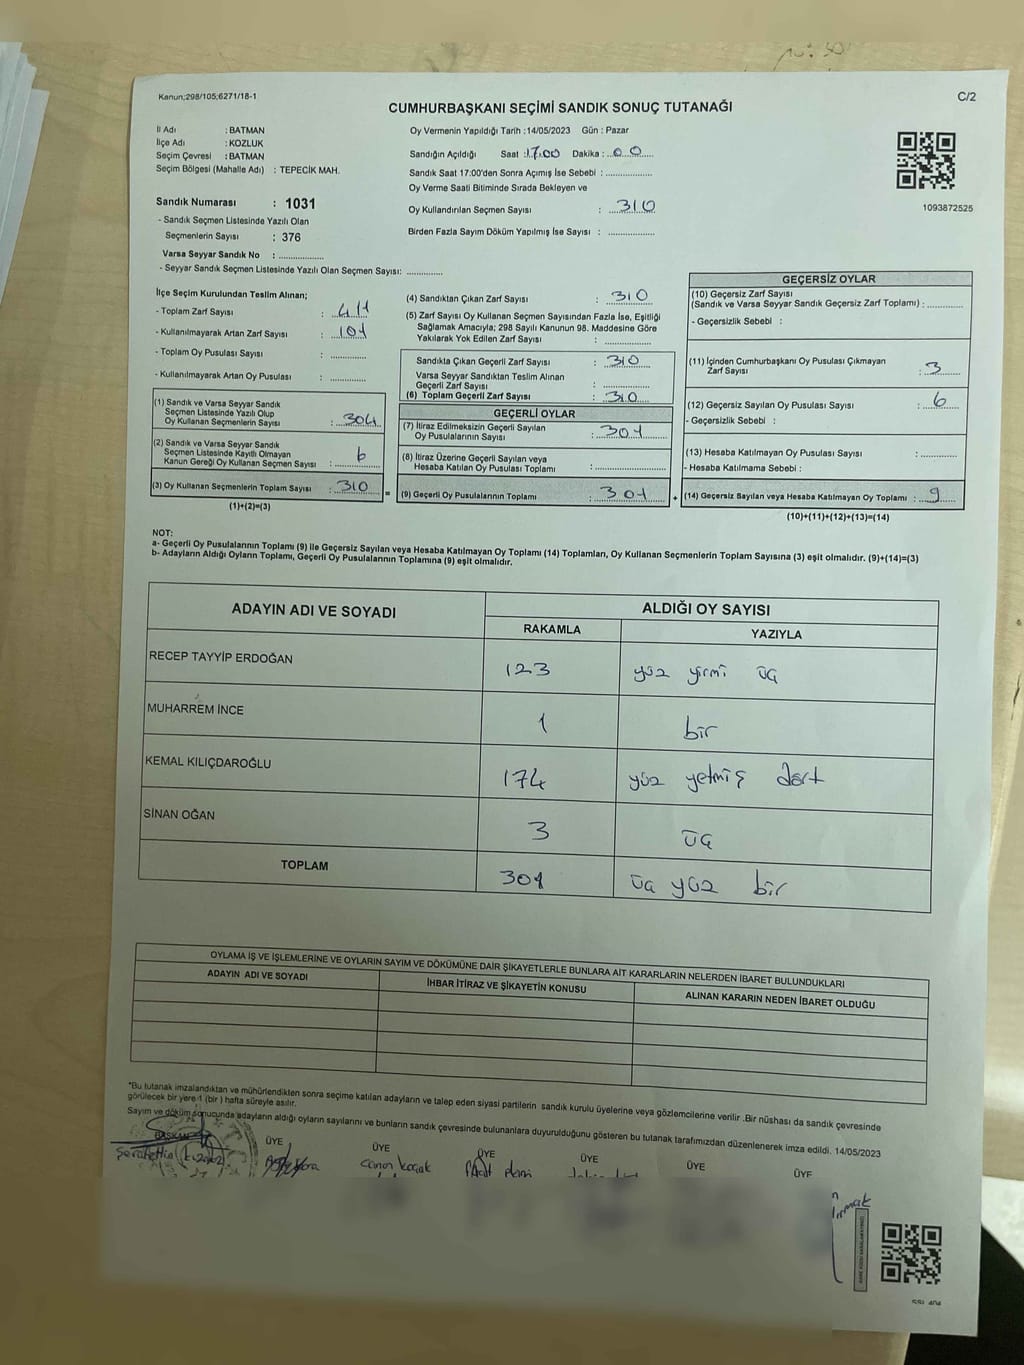 Kanun;298/105;6271/18-1
C/2
CUMHURBAŞKANI SEÇİMİ SANDIK SONUÇ TUTANAĞI
İl Adı : BATMAN
İlçe Adı : KOZLUK
Seçim Çevresi : BATMAN
Seçim Bölgesi (Mahalle Adı) : TEPECİK MAH.
Sandık Numarası : 1031
- Sandık Seçmen Listesinde Yazılı Olan
Seçmenlerin Sayısı : 376
Varsa Seyyar Sandık No : ..............
- Seyyar Sandık Seçmen Listesinde Yazılı Olan Seçmen Sayısı: ............
Oy Vermenin Yapıldığı Tarih :14/05/2023 Gün : Pazar
Sandığın Açıldığı Saat :17.00 Dakika : 00
Sandık Saat 17:00'den Sonra Açımış İse Sebebi : ..............
Oy Verme Saati Bitiminde Sırada Bekleyen ve
Oy Kullandırılan Seçmen Sayısı : 310
Birden Fazla Sayım Döküm Yapılmış İse Sayısı : ..............
1093872525
İlçe Seçim Kurulundan Teslim Alınan;
- Toplam Zarf Sayısı : 411
- Kullanılmayarak Artan Zarf Sayısı : 101
- Toplam Oy Pusulası Sayısı : ............
- Kullanılmayarak Artan Oy Pusulası : ............
(1) Sandık ve Varsa Seyyar Sandık
Seçmen Listesinde Yazılı Olup
Oy Kullanan Seçmenlerin Sayısı : 304
(2) Sandık ve Varsa Seyyar Sandık
Seçmen Listesinde Kayıtlı Olmayan
Kanun Gereği Oy Kullanan Seçmen Sayısı : 6
(3) Oy Kullanan Seçmenlerin Toplam Sayısı : 310 =
(1)+(2)=(3)
(4) Sandıktan Çıkan Zarf Sayısı : 310
(5) Zarf Sayısı Oy Kullanan Seçmen Sayısından Fazla İse, Eşitliği
Sağlamak Amacıyla; 298 Sayılı Kanunun 98. Maddesine Göre
Yakılarak Yok Edilen Zarf Sayısı : ..............
Sandıkta Çıkan Geçerli Zarf Sayısı : 310
Varsa Seyyar Sandıktan Teslim Alınan
Geçerli Zarf Sayısı : ..............
(6) Toplam Geçerli Zarf Sayısı : 310
GEÇERLİ OYLAR
(7) İtiraz Edilmeksizin Geçerli Sayılan
Oy Pusulalarının Sayısı : 301
(8) İtiraz Üzerine Geçerli Sayılan veya
Hesaba Katılan Oy Pusulası Toplamı : ..............
(9) Geçerli Oy Pusulalarının Toplamı : 301 +
GEÇERSİZ OYLAR
(10) Geçersiz Zarf Sayısı
(Sandık ve Varsa Seyyar Sandık Geçersiz Zarf Toplamı) : ............
- Geçersizlik Sebebi :
(11) İçinden Cumhurbaşkanı Oy Pusulası Çıkmayan
Zarf Sayısı : 3
(12) Geçersiz Sayılan Oy Pusulası Sayısı : 6
- Geçersizlik Sebebi :
(13) Hesaba Katılmayan Oy Pusulası Sayısı : ............
- Hesaba Katılmama Sebebi :
(14) Geçersiz Sayılan veya Hesaba Katılmayan Oy Toplamı : 9
(10)+(11)+(12)+(13)=(14)
NOT:
a- Geçerli Oy Pusulalarının Toplamı (9) ile Geçersiz Sayılan veya Hesaba Katılmayan Oy Toplamı (14) Toplamları, Oy Kullanan Seçmenlerin Toplam Sayısına (3) eşit olmalıdır. (9)+(14)=(3)
b- Adayların Aldığı Oyların Toplamı, Geçerli Oy Pusulalarının Toplamına (9) eşit olmalıdır.
ADAYIN ADI VE SOYADI ALDIĞI OY SAYISI
RAKAMLA YAZIYLA
RECEP TAYYİP ERDOĞAN 123 yüz yirmi üç
MUHARREM İNCE 1 bir
KEMAL KILIÇDAROĞLU 174 yüz yetmiş dört
SİNAN OĞAN 3 üç
TOPLAM 301 üç yüz bir
OYLAMA İŞ VE İŞLEMLERİNE VE OYLARIN SAYIM VE DÖKÜMÜNE DAİR ŞİKAYETLERLE BUNLARA AİT KARARLARIN NELERDEN İBARET BULUNDUKLARI
ADAYIN ADI VE SOYADI İHBAR İTİRAZ VE ŞİKAYETİN KONUSU ALINAN KARARIN NEDEN İBARET OLDUĞU
*Bu tutanak imzalandıktan ve mühürlendikten sonra seçime katılan adayların ve talep eden siyasi partilerin sandık kurulu üyelerine veya gözlemcilerine verilir .Bir nüshası da sandık çevresinde
görülecek bir yere 1 (bir ) hafta süreyle asılır.
Sayım ve döküm sonucunda adayların aldığı oyların sayılarını ve bunların sandık çevresinde bulunanlara duyurulduğunu gösteren bu tutanak tarafımızdan düzenlenerek imza edildi. 14/05/2023
BAŞKAN ÜYE ÜYE ÜYE ÜYE ÜYE ÜYE